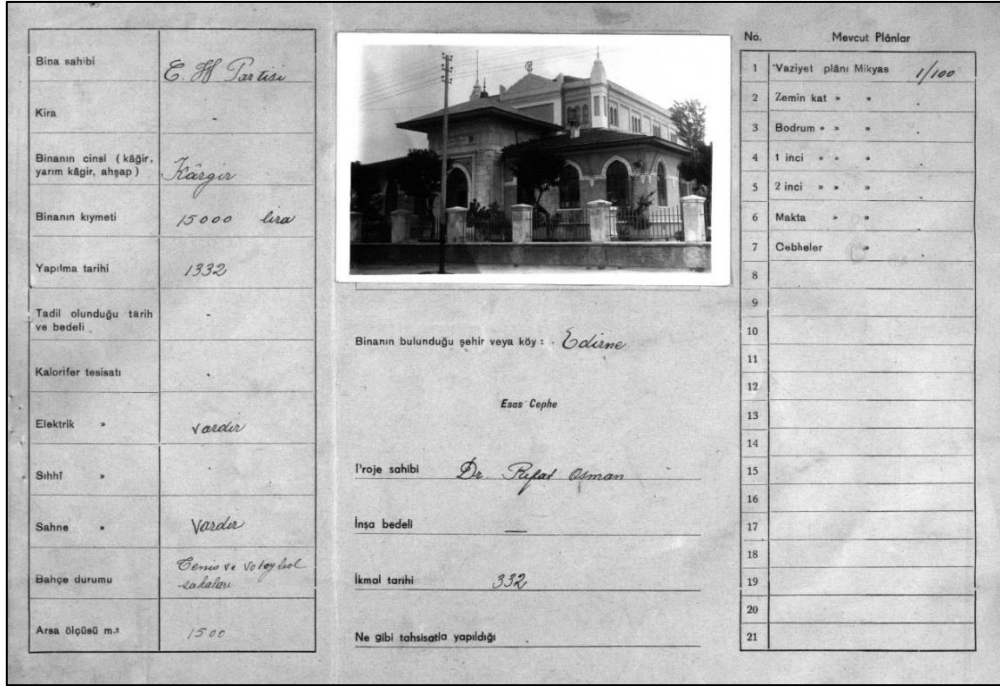 Bina sahibi C. H Partisi
Kira -
Binanın cinsi ( kâgir,
yarım kâgir, ahşap ) Kârgir
Binanın kıymeti 15000 lira
Yapılma tarihi 1332
Tadil olunduğu tarih
ve bedeli -
Kalorifer tesisatı -
Elektrik » vardır
Sıhhî »
Sahne » Vardır
Bahçe durumu Tenis ve Voleybol
sahaları
Arsa ölçüsü m.² 1500
Binanın bulunduğu şehir veya köy : Edirne
Esas Cephe
Proje sahibi Dr Rifat Osman
İnşa bedeli —
İkmal tarihi 332
Ne gibi tahsisatla yapıldığı
No. Mevcut Plânlar
1 Vaziyet plânı Mikyas 1/100
2 Zemin kat » »
3 Bodrum » » »
4 1 inci » » »
5 2 inci » » »
6 Makta » »
7 Cebheler »
8
9
10
11
12
13
14
15
16
17
18
19
20
21